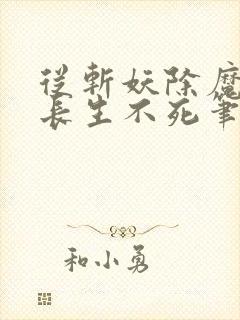 從斬妖除魔
長生不死筆
和小勇